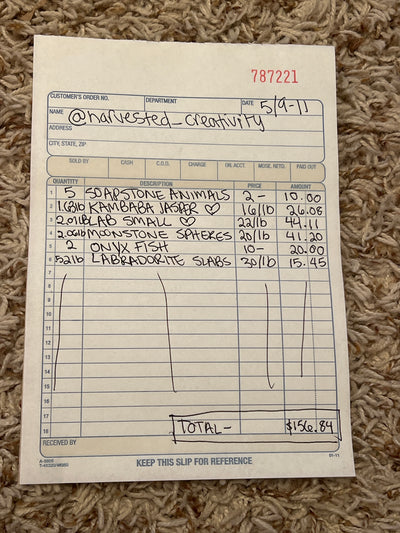 787221
CUSTOMER'S ORDER NO. DEPARTMENT DATE 5/9-11
NAME @harvested_creativity
ADDRESS
CITY, STATE, ZIP
SOLD BY CASH C.O.D. CHARGE ON ACCT. MDSE. RETD. PAID OUT
QUANTITY DESCRIPTION PRICE AMOUNT
1 5 SOAPSTONE ANIMALS 2- 10.00
2 1.63lb KAMBABA JASPER ♡ 16/lb 26.08
3 2.01lb LAB SMALL ♡ 22/lb 44.11
4 2.06lb MOONSTONE SPHERES 20/lb 41.20
5 2 ONYX FISH 10- 20.00
6 .52lb LABRADORITE SLABS 30/lb 15.45
7
8
9
10
11
12
13
14
15
16
17
18 TOTAL- $156.84
RECEIVED BY
A-5805
KEEP THIS SLIP FOR REFERENCE
01-11